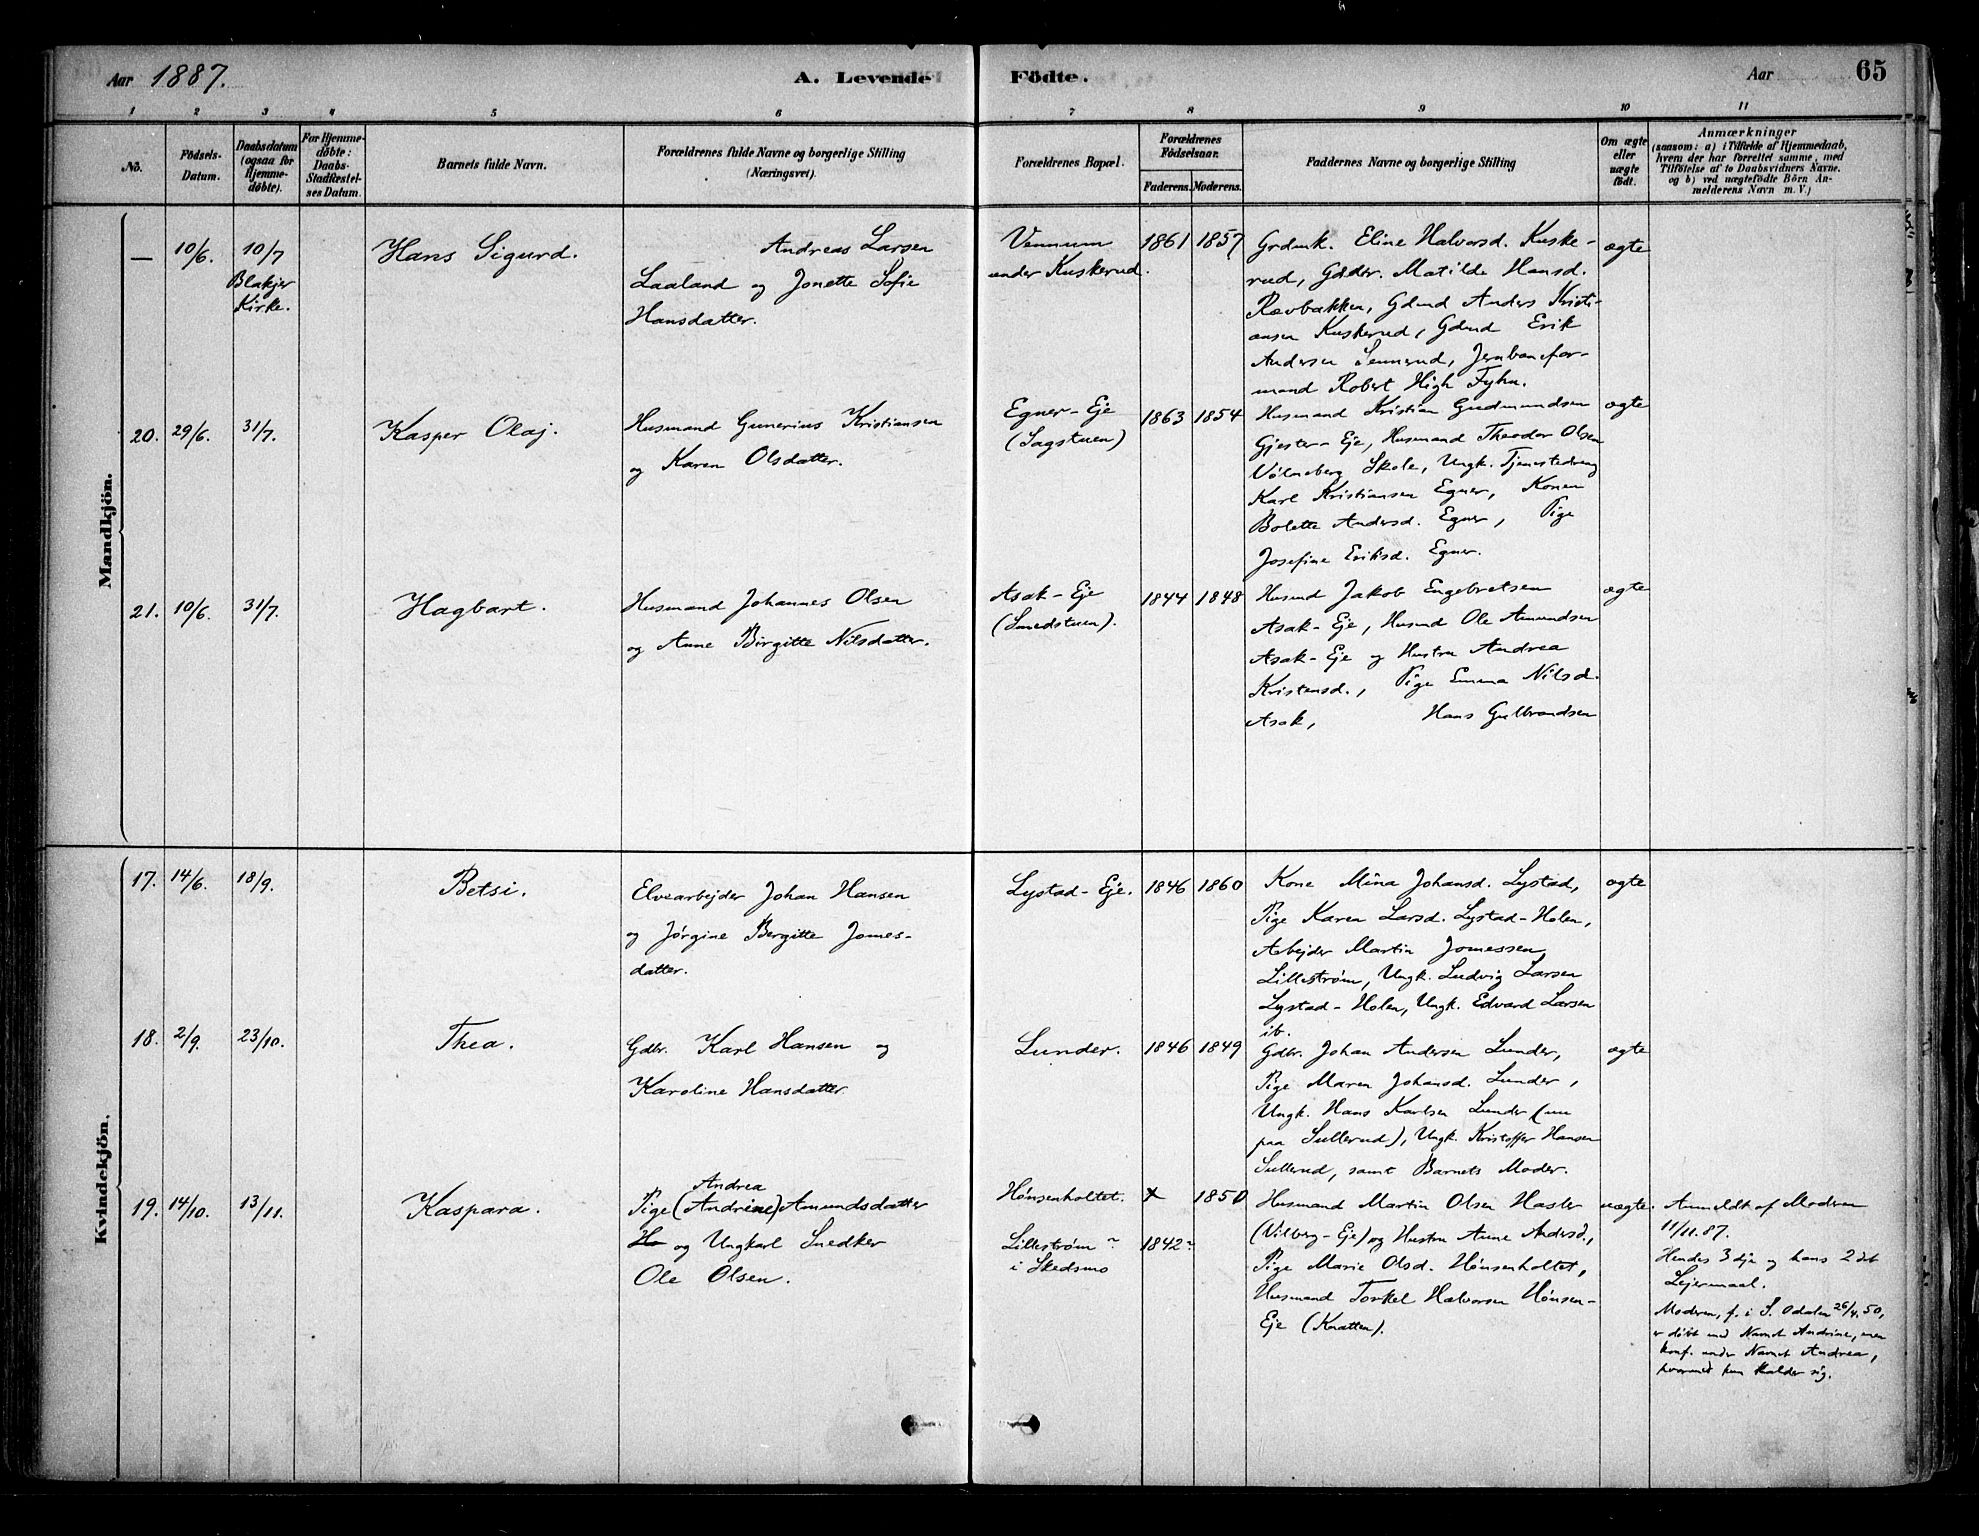 Aar 1887.
A. Levende Födte.
Aar
65
1 2 3 4 5 6 7 8 9 10 11
No.
Födsels-
Datum.
Daabsdatum
(ogsaa for
Hjemme-
døbte).
For Hjemme-
døbte:
Daabs-
Stadfæstel-
ses Datum.
Barnets fulde Navn.
Forældrenes fulde Navne og borgerlige Stilling
(Næringsvei).
Forældrenes Bopæl.
Forældrenes
Födselsaar.
Faderens. Moderens.
Faddernes Navne og borgerlige Stilling
Om ægte
eller
uægte
født.
Anmærkninger
(saasom: a) i Tilfælde af Hjemmedaab,
hvem der har forrettet samme, med
Tilföielse af to Daabsvidners Navne.
og b) ved uægtefödte Börn An-
melderens Navn m. V.)
Mandkjön.
— 10/6. 10/7
Blakjer
Kirke.
Hans Sigurd.
Andreas Larsen
Laaland og Jonette Sofie
Hansdatter.
Vennum
under Kuskerud.
1861 1857
Grdmk. Eline Halvorsd. Kuske-
rud, Gdder. Matilde Hansd.
Rævbakken, Gdmd Anders Kristi-
ansen Kuskerud, Gdmd Erik
Andersen Sennerud, Jernbanefor-
mand Robert High Fyhn.
ægte
20. 29/6. 31/7.
Kasper Olaj.
Husmand Gunerius Kristiansen
og Karen Olsdatter.
Egner-Eje
(Sagstuen)
1863 1854
Husmand Kristian Gudmundsen
Gjester-Eje, Husmand Theodor Olsen
Vølneberg Skole, Ungk. Tjenestedreng
Karl Kristiansen Egner, Konen
Bolette Andersd. Egner, Pige
Josefine Eriksd. Egner.
ægte
21. 10/6. 31/7.
Hagbart.
Husmand Johannes Olsen
og Anne Birgitte Nilsdatter.
Asak-Eje
(Smedstuen).
1844 1848
Husmd Jakob Engebretsen
Asak-Eje, Husmd Ole Amundsen
Asak-Eje og Hustru Andrea
Kristensd., Pige Emma Nilsd.
Asak, Hans Gulbrandsen
ægte
Kvindekjön.
17. 14/6. 18/9.
Betsi.
Elvearbejder Johan Hansen
og Jørgine Bergitte Jomes-
datter.
Lystad-Eje.
1846 1860
Kone Mina Johansd. Lystad,
Pige Karen Larsd. Lystad-Holen,
Arbejder Martin Jomessen
Lillestrøm, Ungk. Ludvig Larsen
Lystad-Holen, Ungk. Edvard Larsen
ib.
ægte
18. 2/9. 23/10.
Thea.
Gdbr. Karl Hansen og
Karoline Hansdatter
Lunder.
1846 1849
Gdbr. Johan Andersen Lunder,
Pige Maren Johansd. Lunder,
Ungk. Hans Karlsen Lunder (nu
paa Sullerud), Ungk. Kristoffer Hansen
Sullerud, samt Barnets Moder.
ægte
19. 14/10. 13/11.
Kaspara.
Andrea
Pige (Andrine) Amundsdatter
Ho og Ungkarl Snedker
Ole Olsen.
Hønsenholtet.
Lillestrøm
i Skedsmo
1850
1842
Husmand Martin Olsen Hasler
(Vilberg-Eje) og Hustru Anne Andersd.,
Pige Marie Olsd. Hønsenholtet,
Husmand Torkel Halvorsen Hønsen-
Eje (Knatten).
uægte.
Anmeldt af Moderen
11/11.87.
Hendes 3dje og hans 2det
Lejermaal.
Moderen, f. i S. Odalen 26/4.50,
er døbt med Navnet Andrine, men
konf. under Navnet Andrea,
hvormed hun kalder sig.